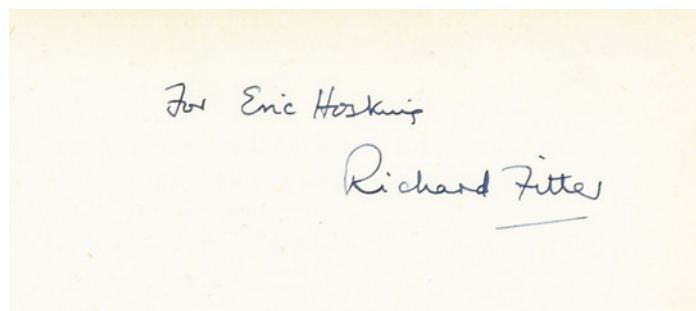 For Eric Hosking
Richard Fitter